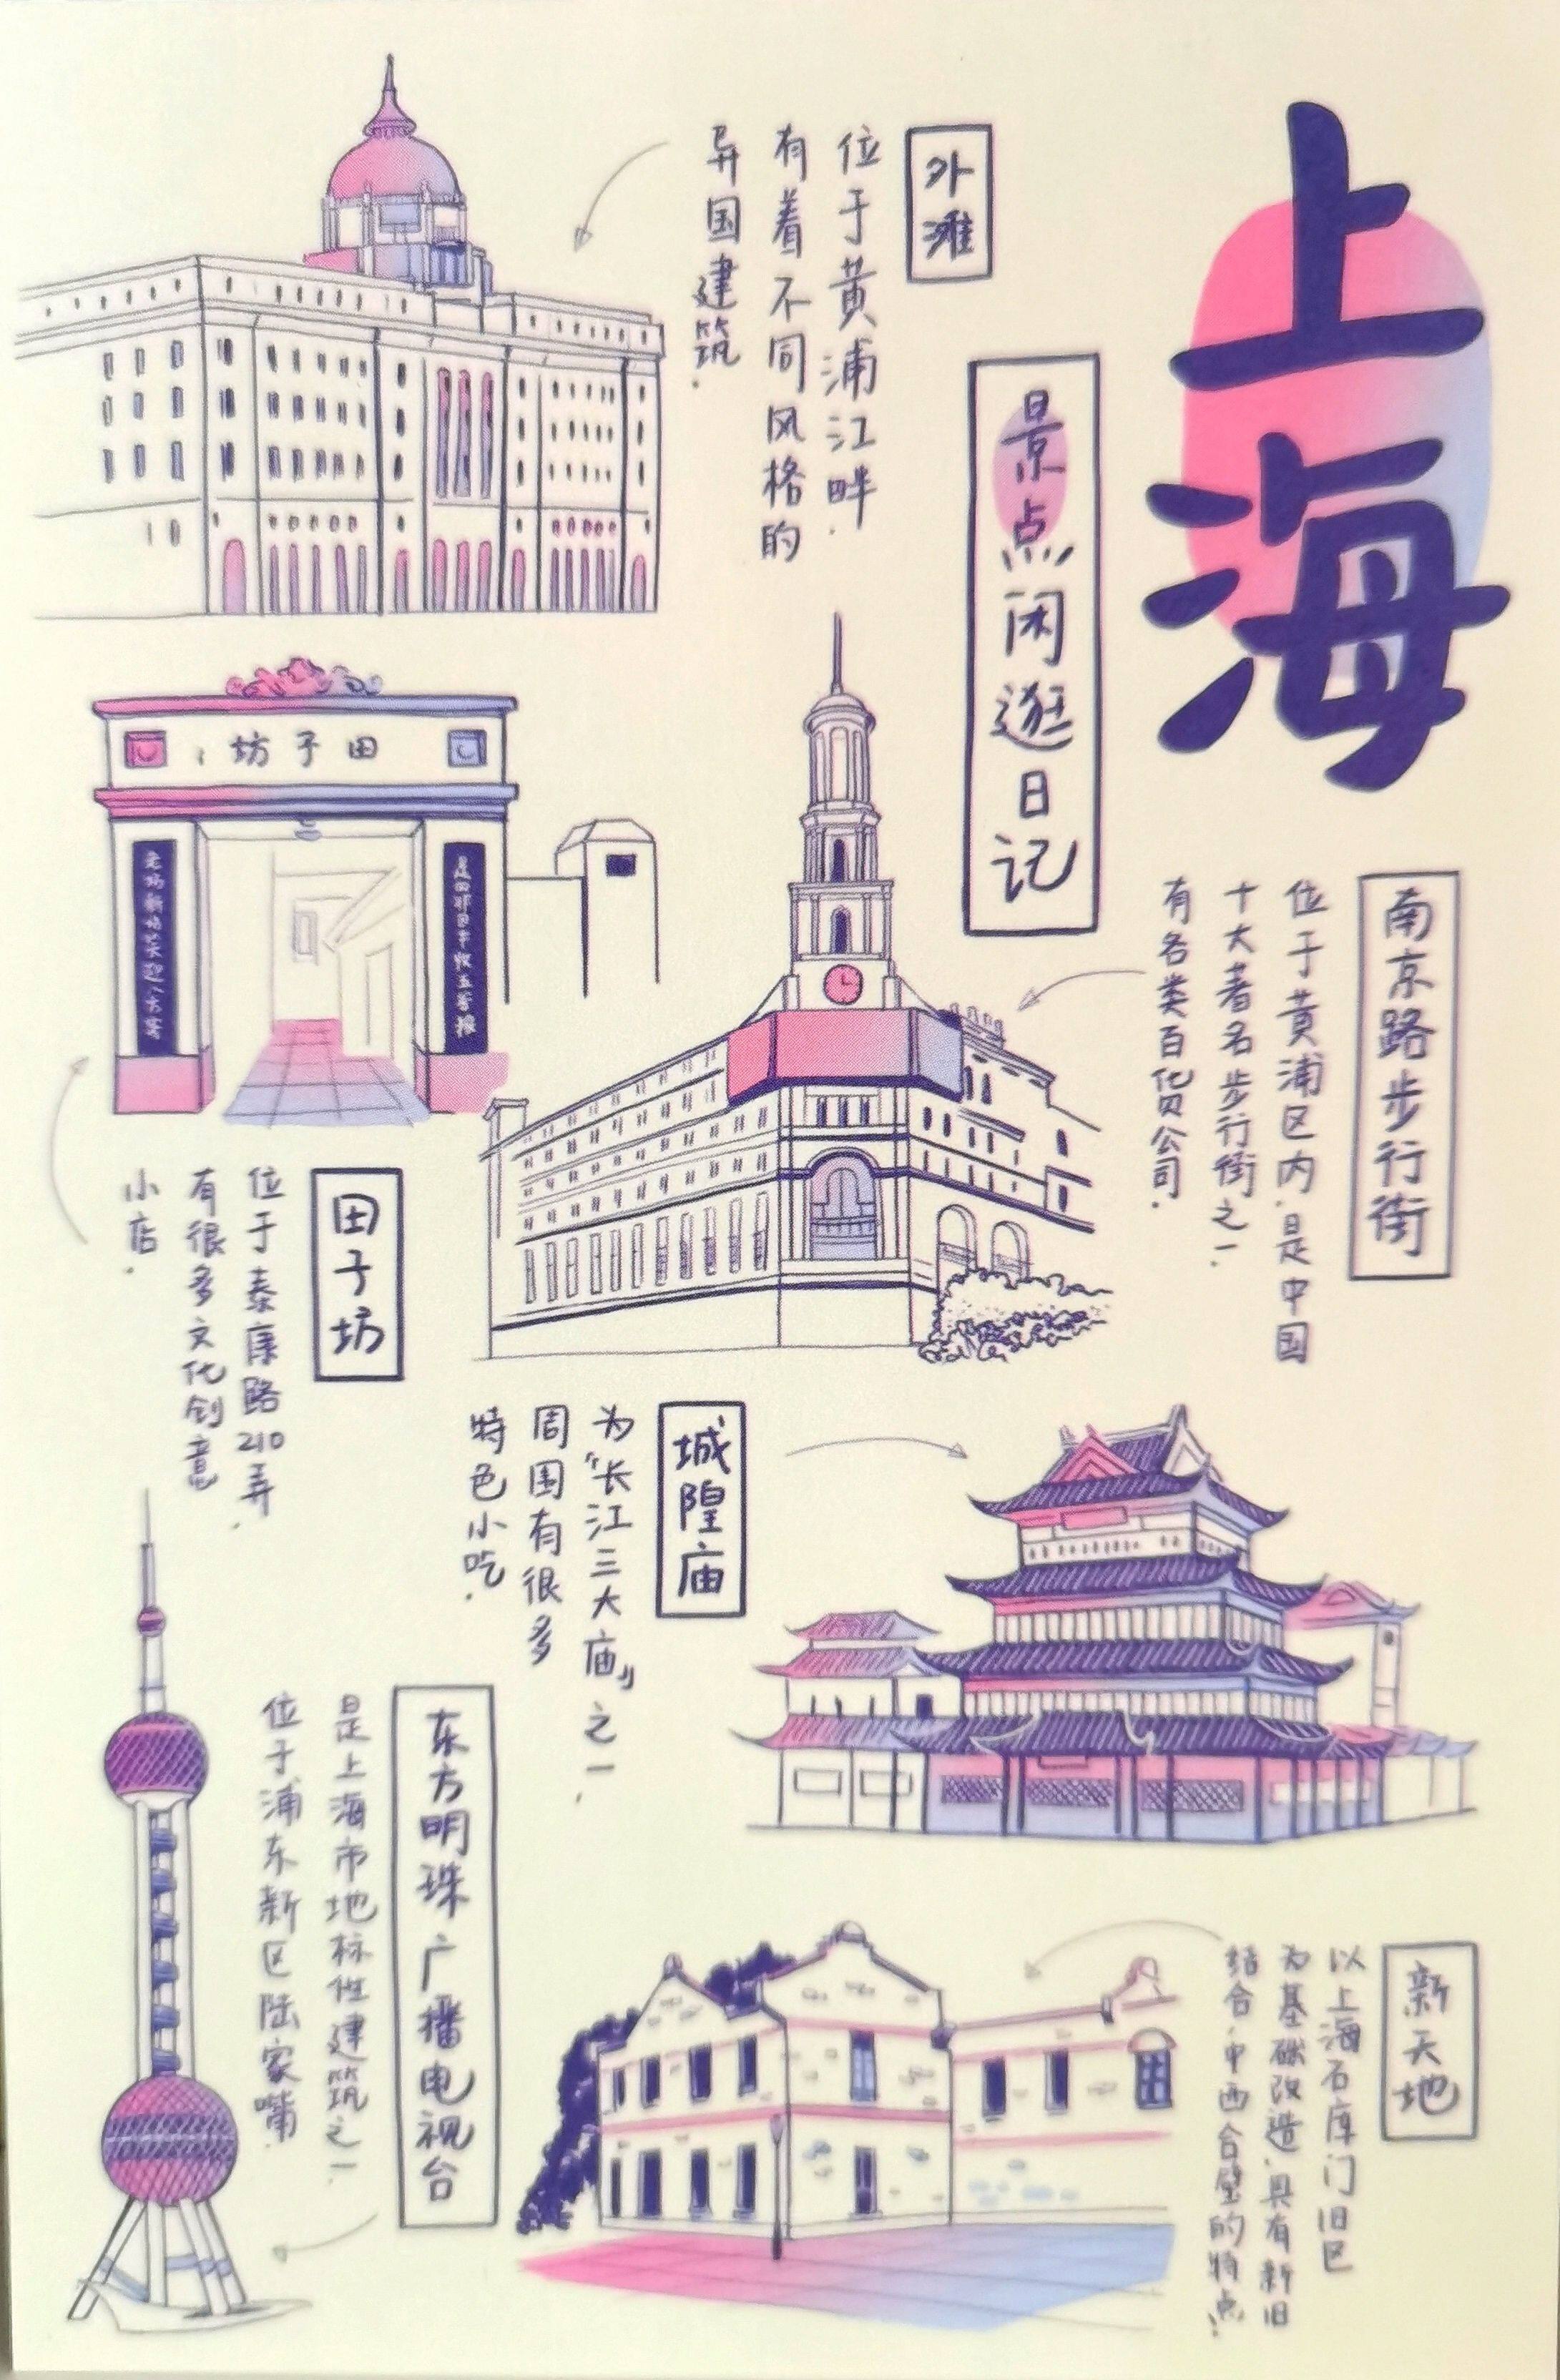 上海
景点闲逛日记
外滩
位于黄浦江畔.
有着不同风格的
异国建筑.
田子坊
南京路步行街
位于黄浦区内.是中国
十大著名步行街之一.
有各类百货公司.
田子坊
位于泰康路210弄.
有很多文化创意
小店.
城隍庙
为“长江三大庙”之一.
周围有很多
特色小吃.
东方明珠广播电视台
是上海市地标性建筑之一.
位于浦东新区陆家嘴.
新天地
以上海石库门旧区
为基础改造.具有新旧
结合.中西合璧的特点.